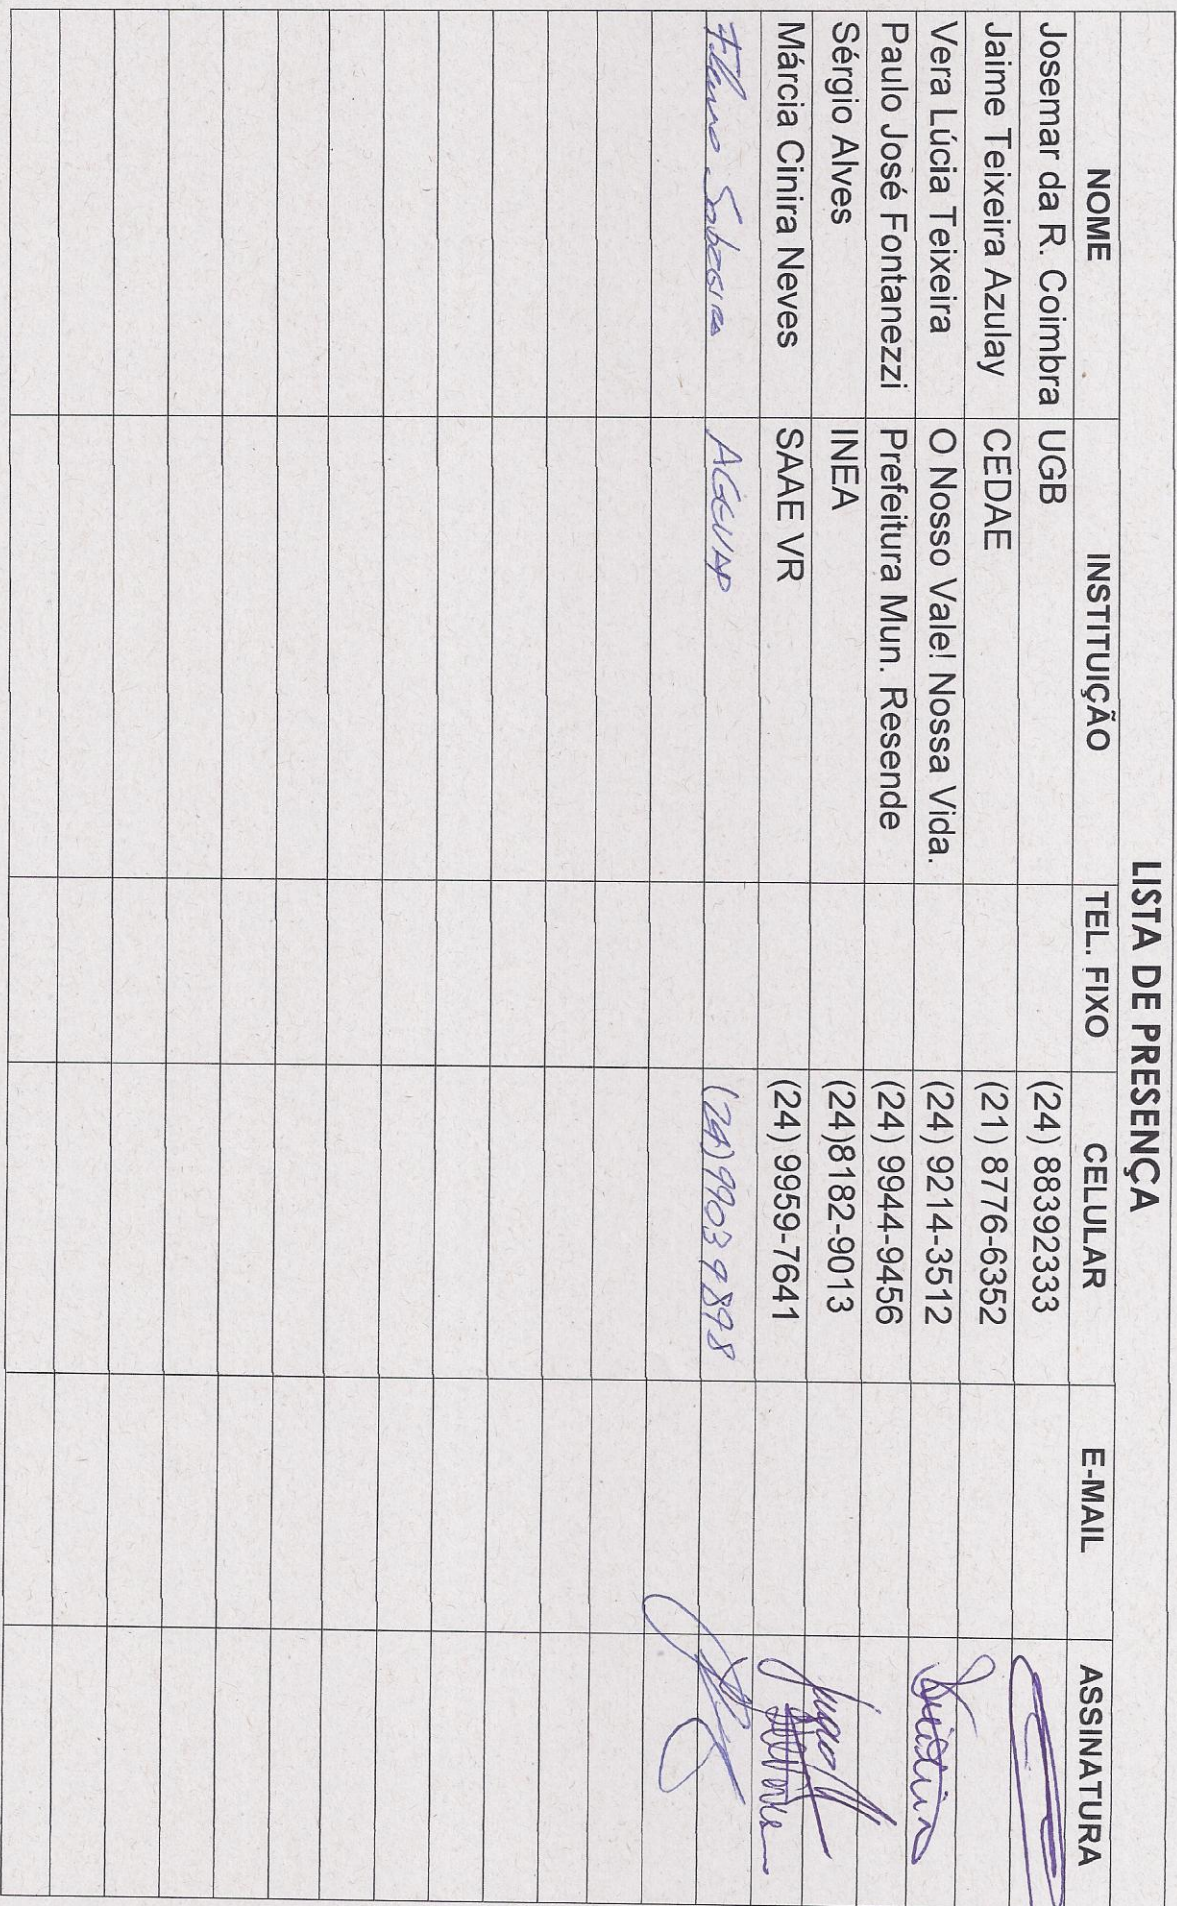 LISTA DE PRESENÇA
NOME INSTITUIÇÃO TEL. FIXO CELULAR E-MAIL ASSINATURA
Josemar da R. Coimbra UGB (24) 88392333
Jaime Teixeira Azulay CEDAE (21) 8776-6352
Vera Lúcia Teixeira O Nosso Vale! Nossa Vida. (24) 9214-3512
Paulo José Fontanezzi Prefeitura Mun. Resende (24) 9944-9456
Sérgio Alves INEA (24)8182-9013
Márcia Cinira Neves SAAE VR (24) 9959-7641
AGEVAP (24)99039898